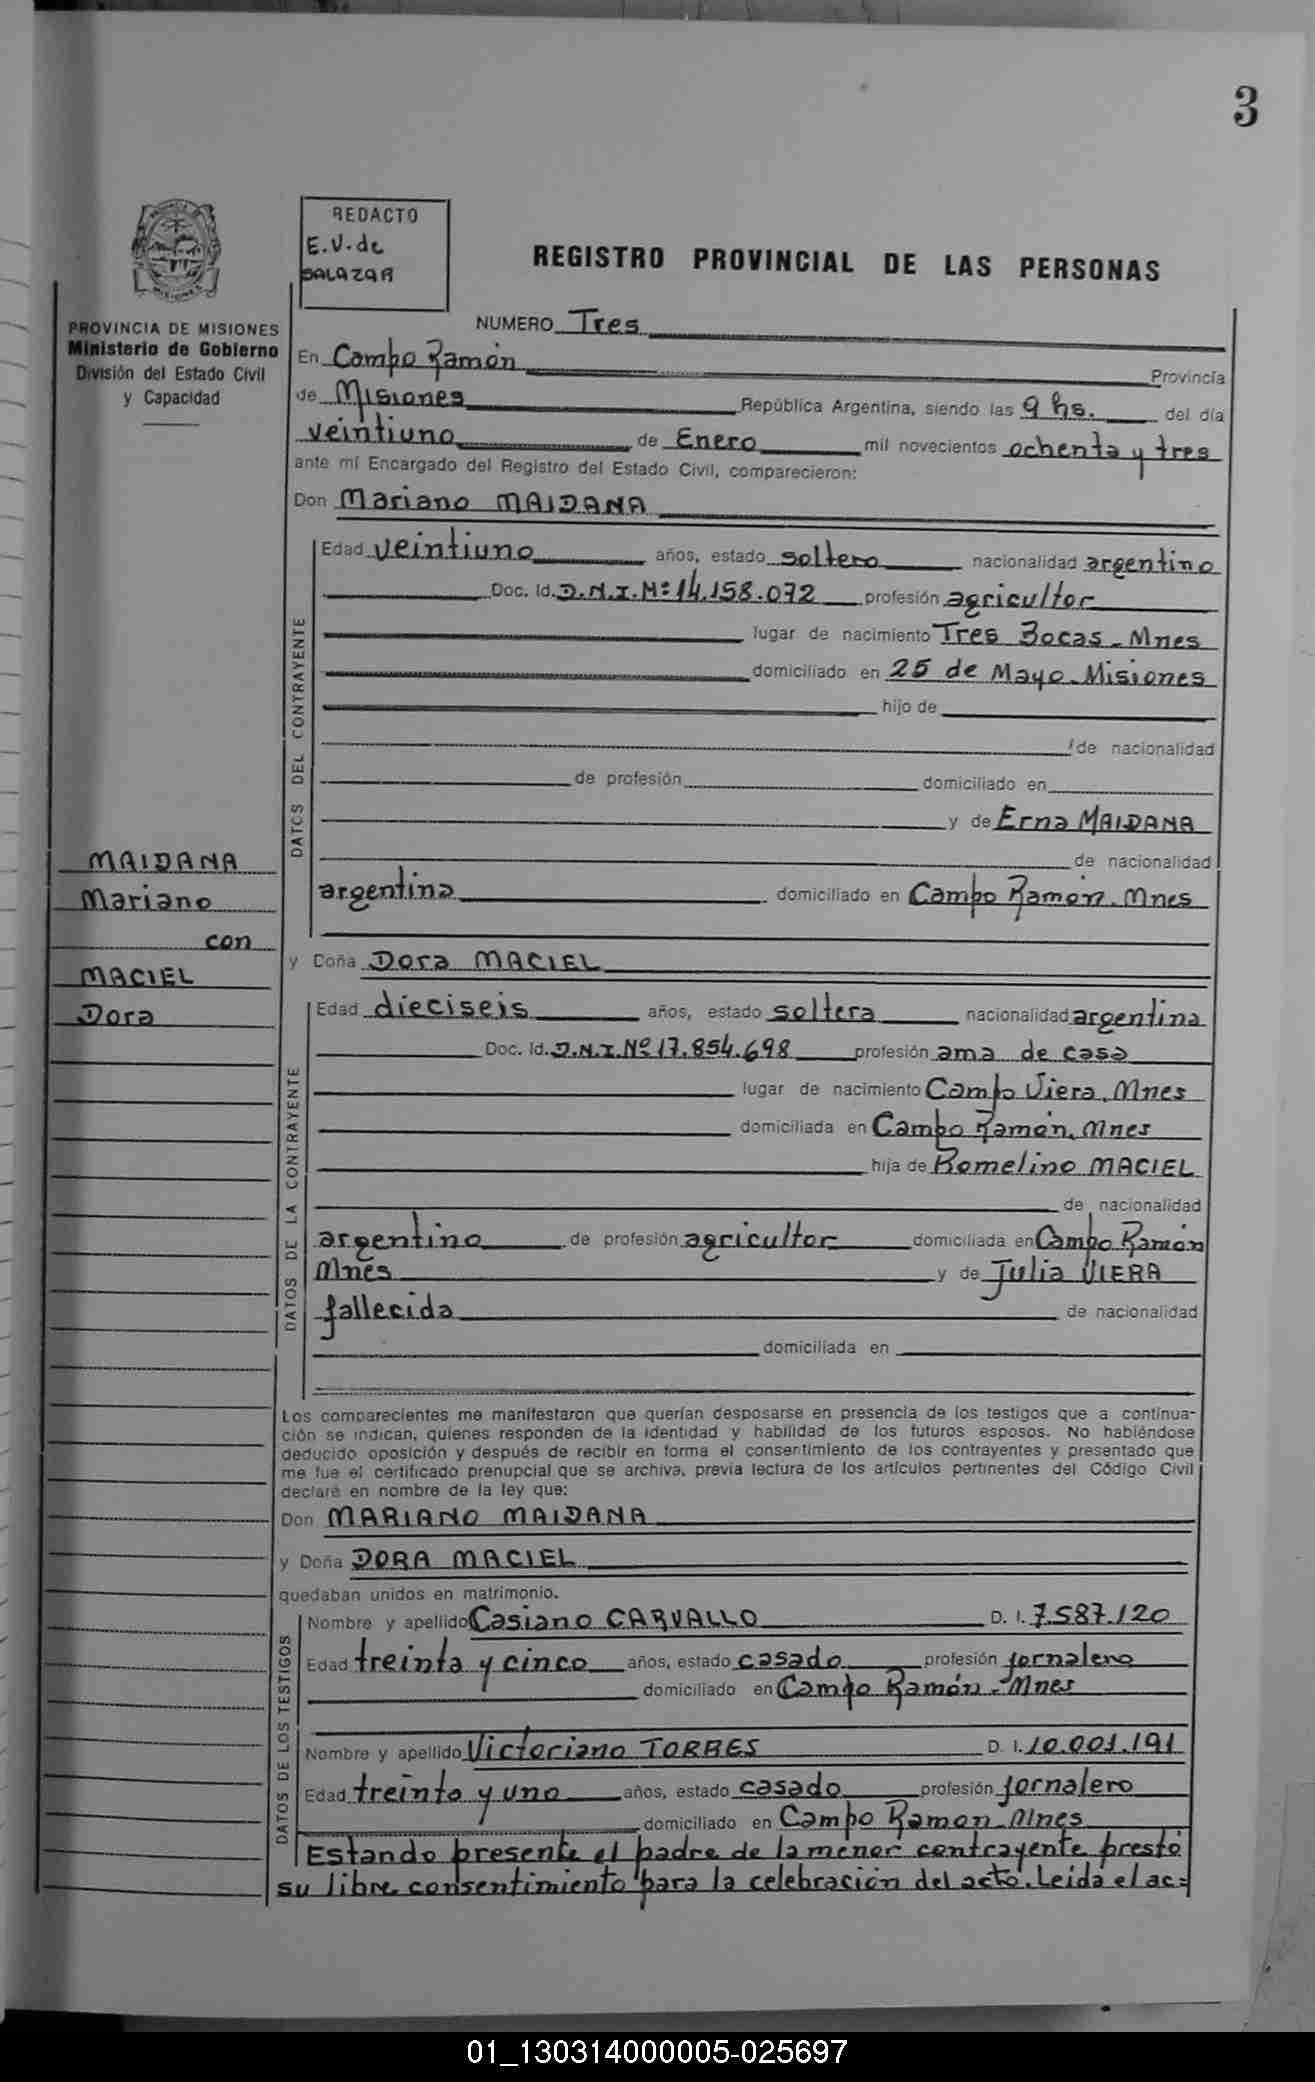 3
REDACTO
E.V. de
SALAZAR
REGISTRO PROVINCIAL DE LAS PERSONAS
PROVINCIA DE MISIONES
Ministerio de Gobierno
División del Estado Civil
y Capacidad
NUMERO Tres
En Campo Ramón Provincia
de Misiones República Argentina, siendo las 9 hs. del día
veintiuno de Enero mil novecientos ochenta y tres
ante mí Encargado del Registro del Estado Civil, comparecieron:
Don Mariano MAIDANA
DATOS DEL CONTRAYENTE
Edad veintiuno años, estado soltero nacionalidad argentino
Doc. Id. D.N.I. Nº 14.158.072 profesión agricultor
lugar de nacimiento Tres Bocas - Mnes
domiciliado en 25 de Mayo - Misiones
hijo de
de nacionalidad
de profesión domiciliado en
y de Erna MAIDANA
de nacionalidad
argentina domiciliado en Campo Ramón. Mnes
MAIDANA
Mariano
con
MACIEL
Dora
y Doña Dora MACIEL
DATOS DE LA CONTRAYENTE
Edad dieciseis años, estado soltera nacionalidad argentina
Doc. Id. D.N.I. Nº 17.854.698 profesión ama de casa
lugar de nacimiento Campo Viera, Mnes
domiciliada en Campo Ramón, Mnes
hija de Romelino MACIEL
de nacionalidad
argentino de profesión agricultor domiciliada en Campo Ramón
Mnes y de Julia VIERA
fallecida de nacionalidad
domiciliada en
Los comparecientes me manifestaron que querían desposarse en presencia de los testigos que a continua-
ción se indican, quienes responden de la identidad y habilidad de los futuros esposos. No habiéndose
deducido oposición y después de recibir en forma el consentimiento de los contrayentes y presentado que
me fue el certificado prenupcial que se archiva, previa lectura de los artículos pertinentes del Código Civil
declaré en nombre de la ley que:
Don MARIANO MAIDANA
y Doña DORA MACIEL
quedaban unidos en matrimonio.
DATOS DE LOS TESTIGOS
Nombre y apellido Casiano CARVALLO D. I. 7.587.120
Edad treinta y cinco años, estado casado profesión jornalero
domiciliado en Campo Ramón - Mnes
Nombre y apellido Victoriano TORRES D. I. 10.001.191
Edad treinta y uno años, estado casado profesión jornalero
domiciliado en Campo Ramon - Mnes
Estando presente el padre de la menor contrayente prestó
su libre consentimiento para la celebración del acto. Leida el ac=
01_130314000005-025697